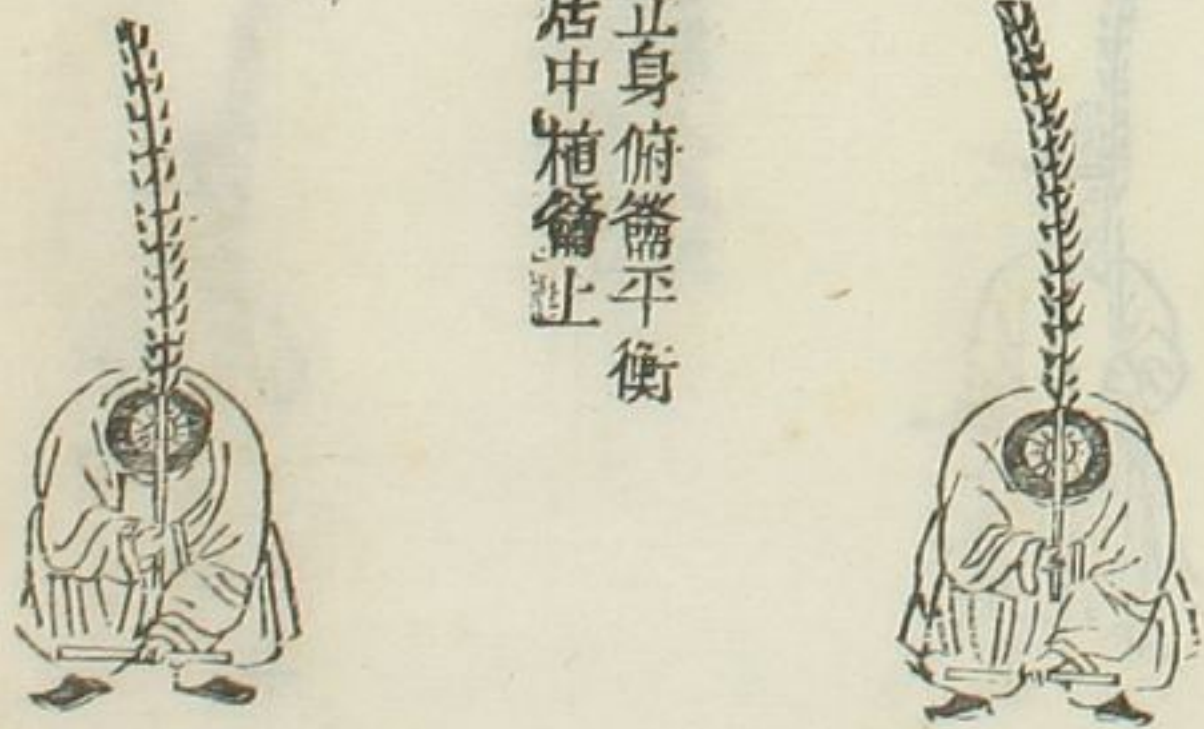 正身俯籥平衡
居中植籥上